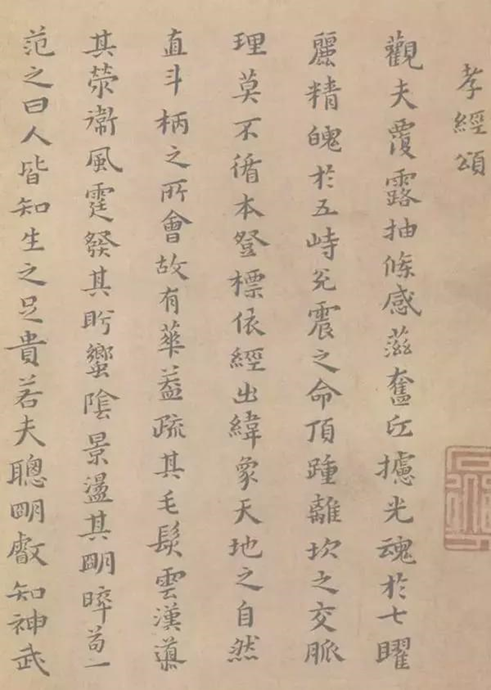 孝經頌
觀夫覆露抽條感滋奮丘攄光魂於七曜
麗精魄於五峙兊震之命頂踵離坎之交脈
理莫不循本登標依經出緯象天地之自然
直斗柄之所會故有華蓋疏其毛髮雲漢導
其滎衞風霆發其肸蠁陰景盪其明晬茍一
范之曰人皆知生之足貴若夫聰明叡知神武